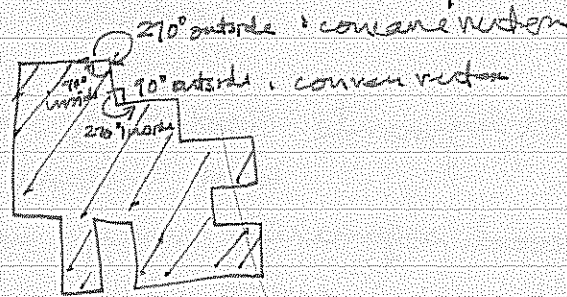 270° outside : concave vertex
90° inside
90° outside : convex vertex
270° inside